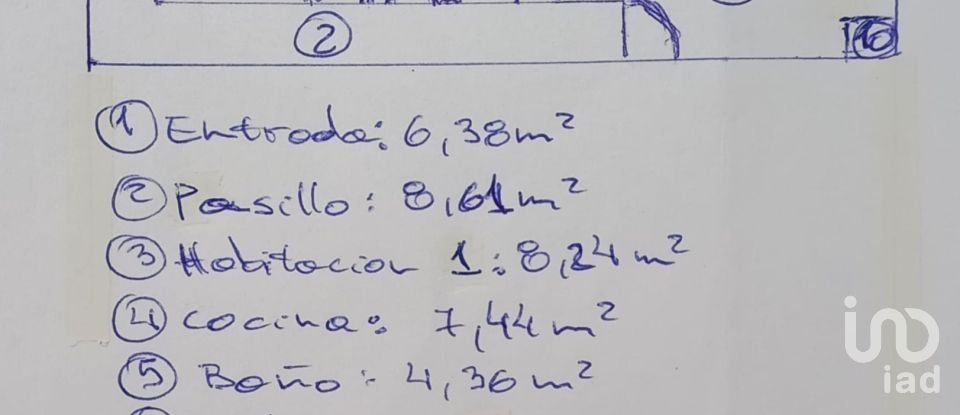 2
10
1 Entrada: 6,38m²
2 Pasillo: 8,61m²
3 Habitacion 1: 8,24m²
4 Cocina: 7,44m²
5 Baño: 4,36m²
iad